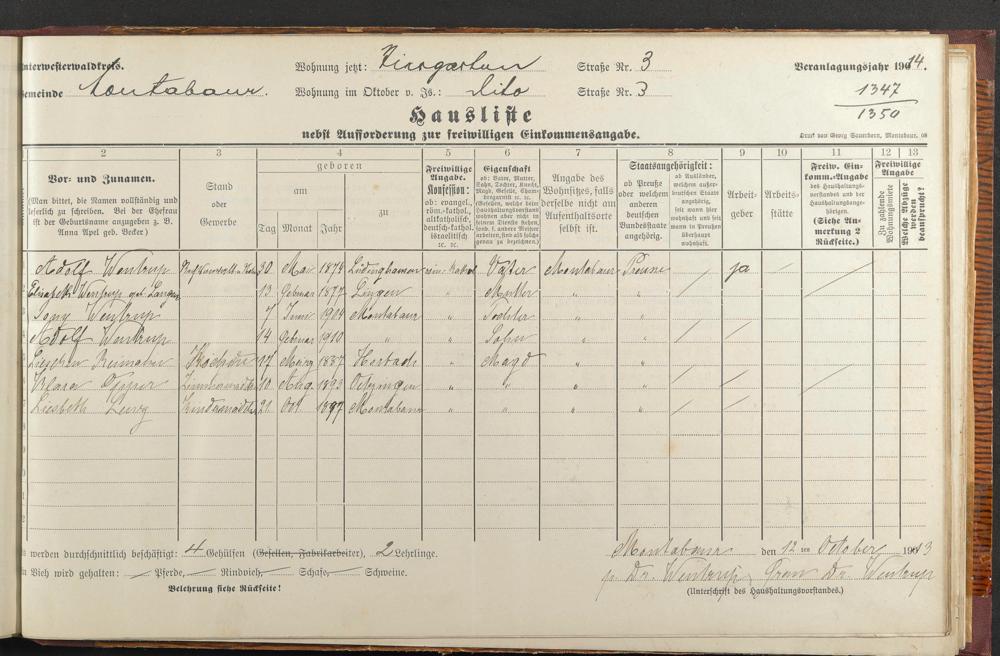 Unterwesterwaldkreis. Wohnung jetzt: Straße Nr. 3 Veranlagungsjahr 1914.
Gemeinde Montabaur. Wohnung im Oktober v. Js.: dito Straße Nr. 3 1347
1350
Hausliste
nebst Aufforderung zur freiwilligen Einkommensangabe.
Druck von Georg Sauerborn, Montabaur. 08
2 3 4 5 6 7 8 9 10 11 12 13
Vor- und Zunamen.
(Man bittet, die Namen vollständig und
leserlich zu schreiben. Bei der Ehefrau
ist der Geburtsname anzugeben z. B.
Anna Apel geb. Becker)
Stand
oder
Gewerbe
geboren
am
zu
Tag Monat Jahr
Freiwillige
Angabe.
Konfession:
ob: evangel.,
röm.-kathol.,
altkatholisch,
deutsch-kathol.
israelitisch
ꝛc. ꝛc.
Eigenschaft
ob: Vater, Mutter,
Sohn, Tochter, Knecht,
Magd, Geselle,
Angabe des
Wohnsitzes, falls
derselbe nicht am
Aufenthaltsorte
selbst ist.
Staatsangehörigkeit:
ob Preuße
oder welchem
anderen
deutschen
Bundesstaate
angehörig.
ob Ausländer,
welchem außer-
deutschen Staate
angehörig,
seit wann hier
wohnhaft und seit
wann in Preußen
überhaupt
wohnhaft.
Arbeit-
geber
Arbeits-
stätte
Freiw. Ein-
komm.-Angabe
des Haushaltungs-
vorstandes und der
Haushaltungsange-
hörigen.
(Siehe An-
merkung 2
Rückseite.)
Freiwillige
Angabe
Zu zahlende
Wohnungsmiete
Welche Abzüge
werden
beansprucht?
Adolf Wentrup 30 Mai 1874 Lüdinghausen Vater Montabaur Preuße ja
Elisabeth Wentrup geb. 13 Februar 1877 Lingen " Mutter " "
Wentrup 7 Juni 1904 Montabaur " Tochter " "
Adolf Wentrup 14 Februar 1910 " " Sohn " "
Lieschen Reimann 17 März 1887 " Magd " "
Klara 10 Aug. 1893 Oetzingen " " " "
Liesbeth 21 Okt. 1897 Montabaur " " " "
Es werden durchschnittlich beschäftigt: 4 Gehülfen (Gesellen, Fabrikarbeiter), 2 Lehrlinge.
An Vieh wird gehalten: — Pferde, — Rindvieh, — Schafe, — Schweine.
Belehrung siehe Rückseite!
Montabaur den 12 ten October 1913
p. Dr. Wentrup, Frau Dr. Wentrup
(Unterschrift des Haushaltungsvorstandes.)